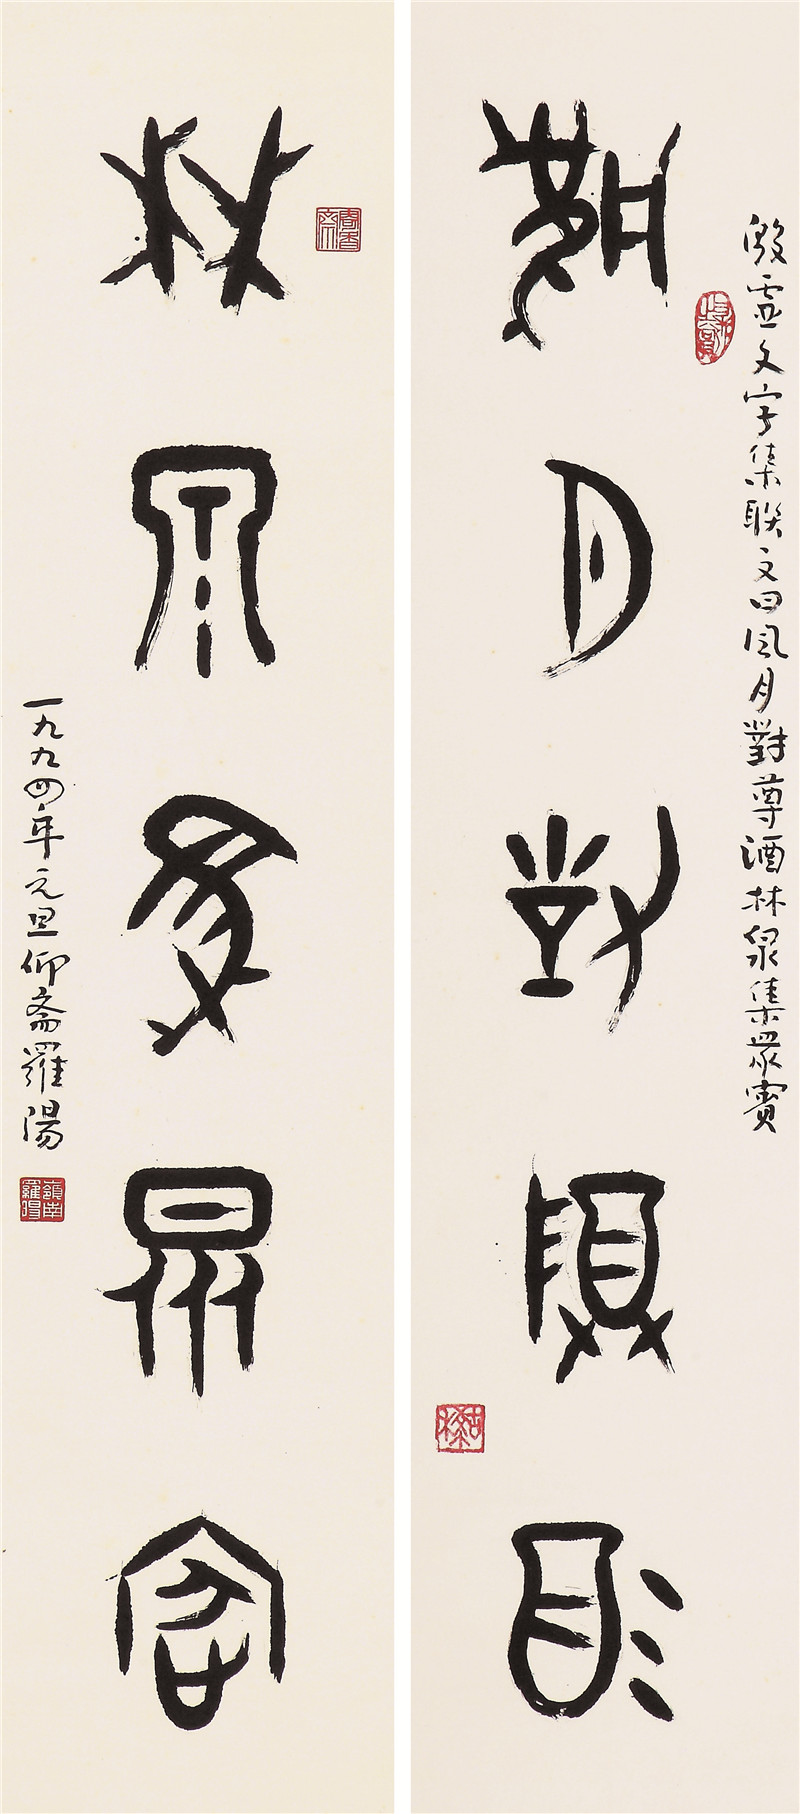 殷虛文字集聯文曰風月對尊酒林泉集眾賓
風月對尊酒
林泉集眾賓
一九九四年元旦仰斋羅陽